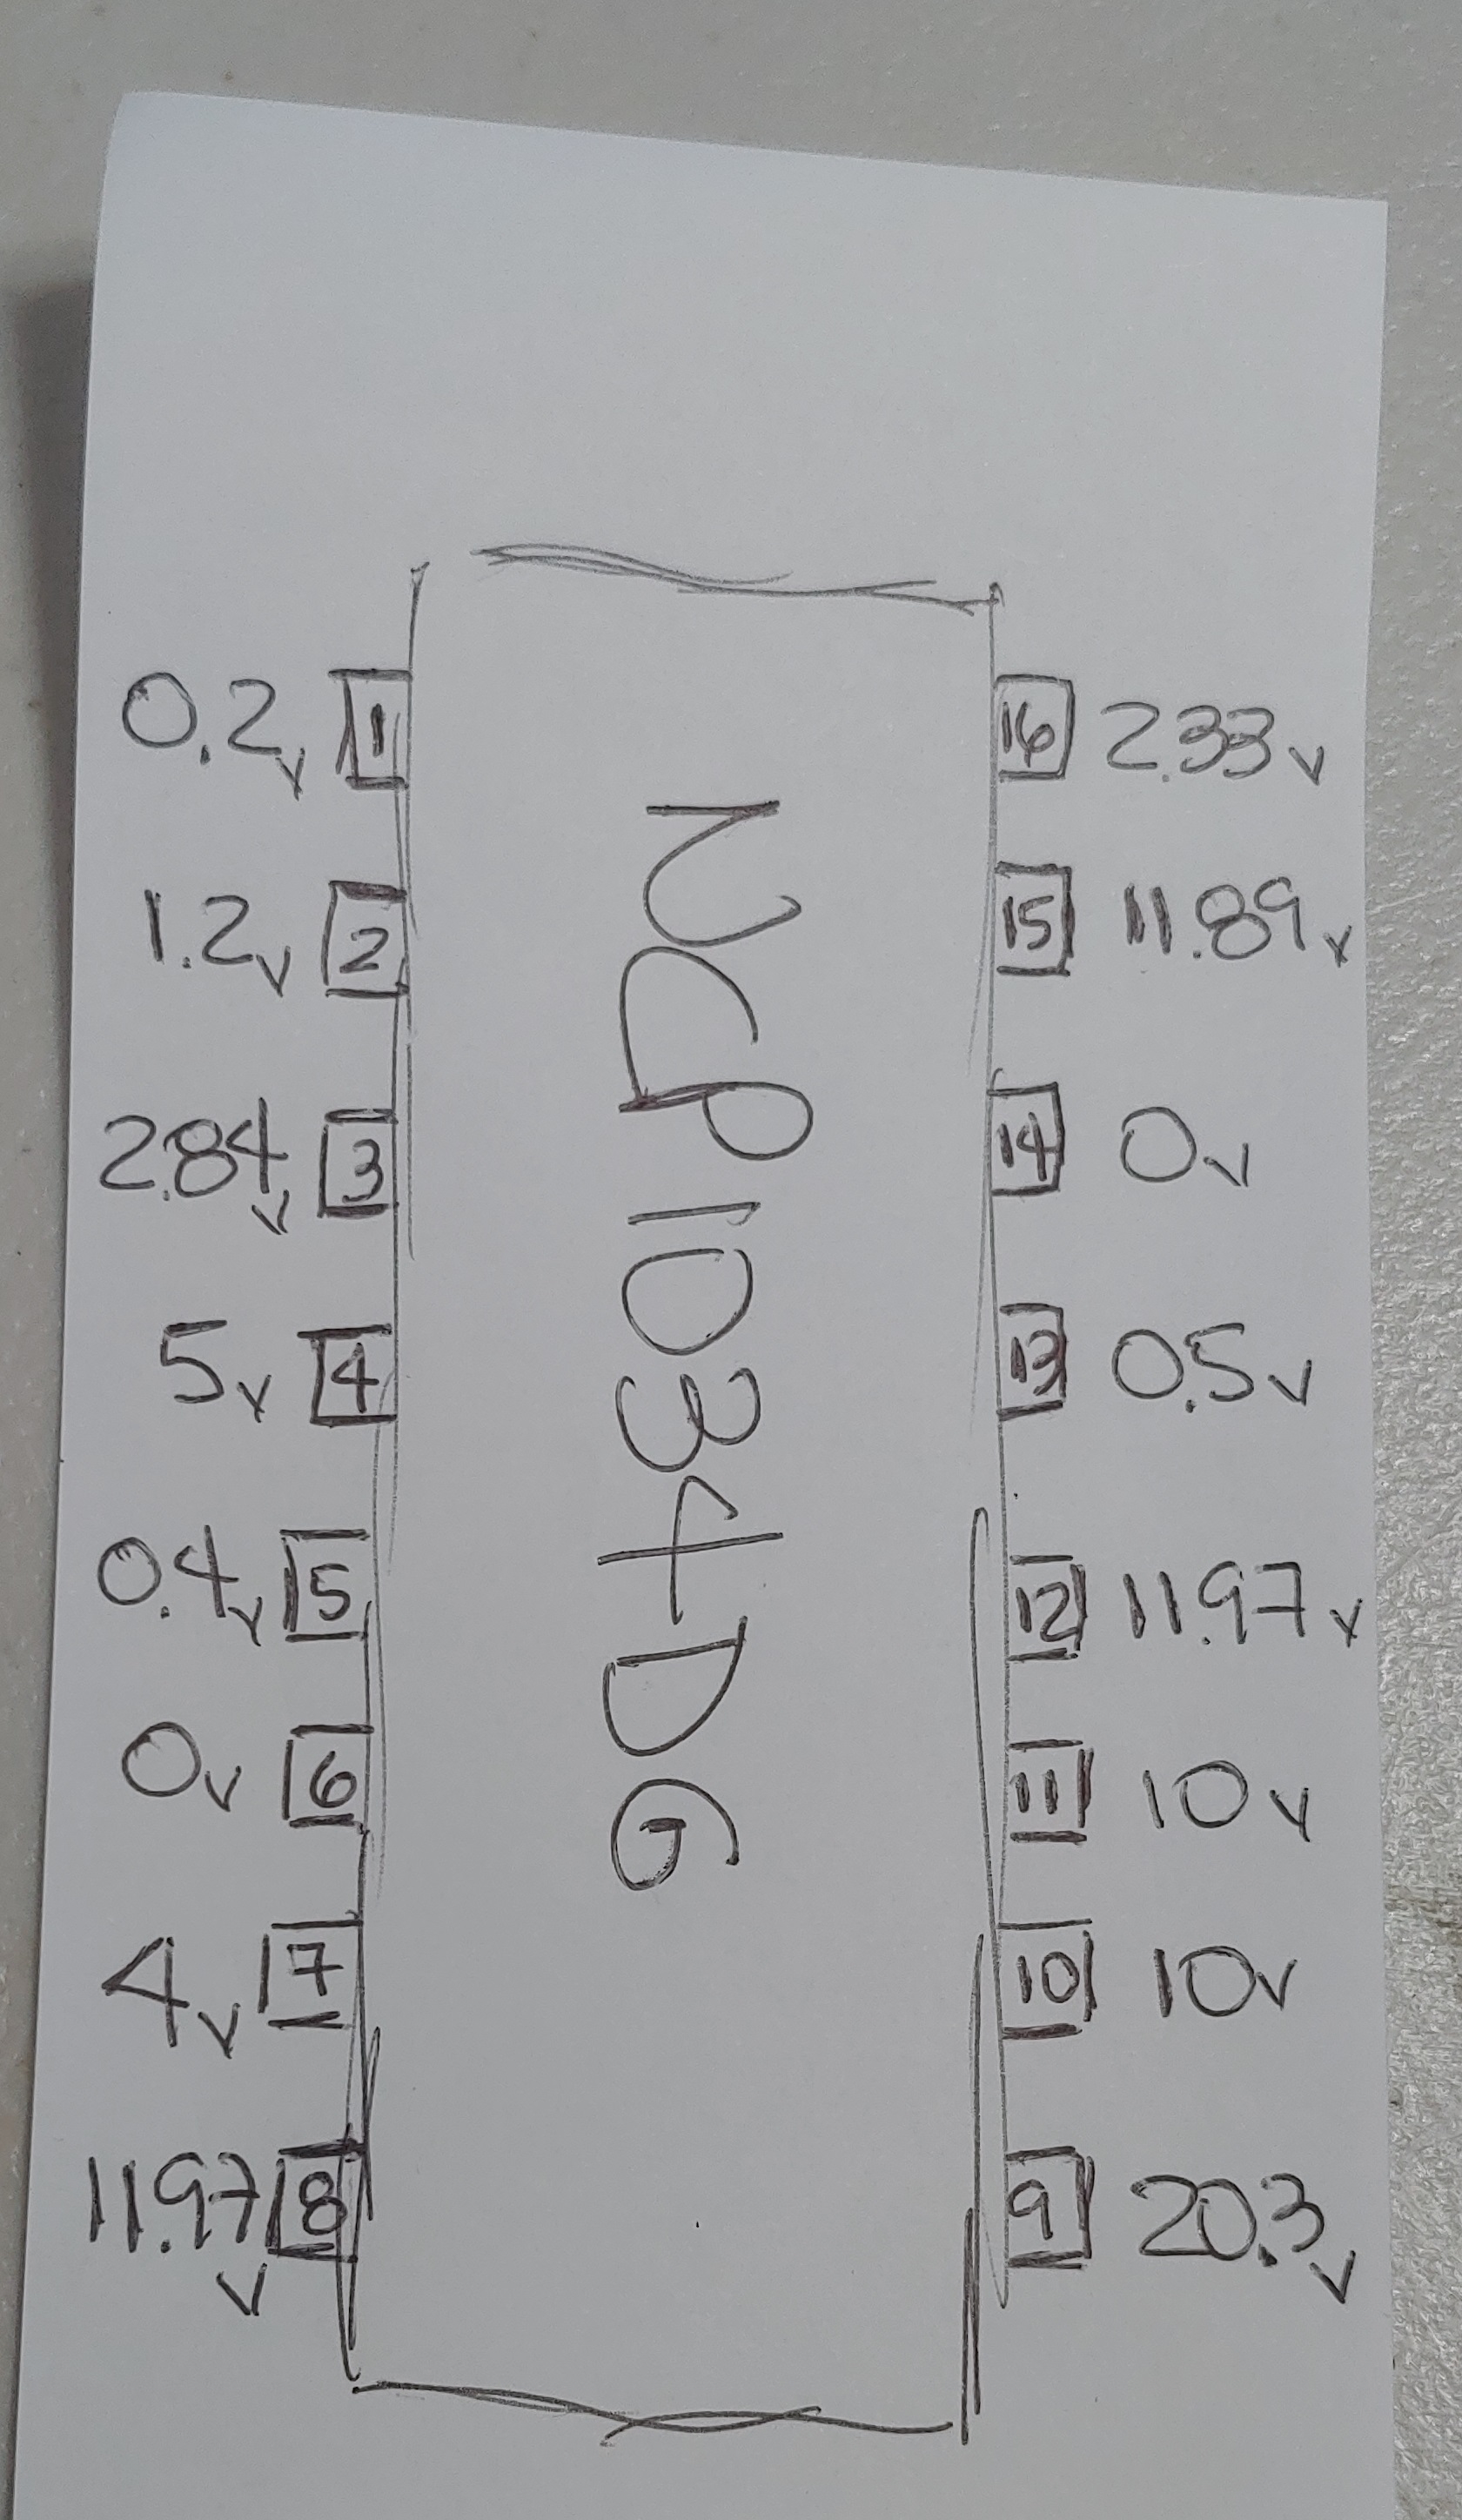 0.2v 1 16 2.33v
1.2v 2 15 11.89v
2.84v 3 14 0v
5v 4 13 0.5v
0.4v 5 12 11.97v
0v 6 11 10v
4v 7 10 10v
11.97v 8 9 20.3v
NCP1034DG